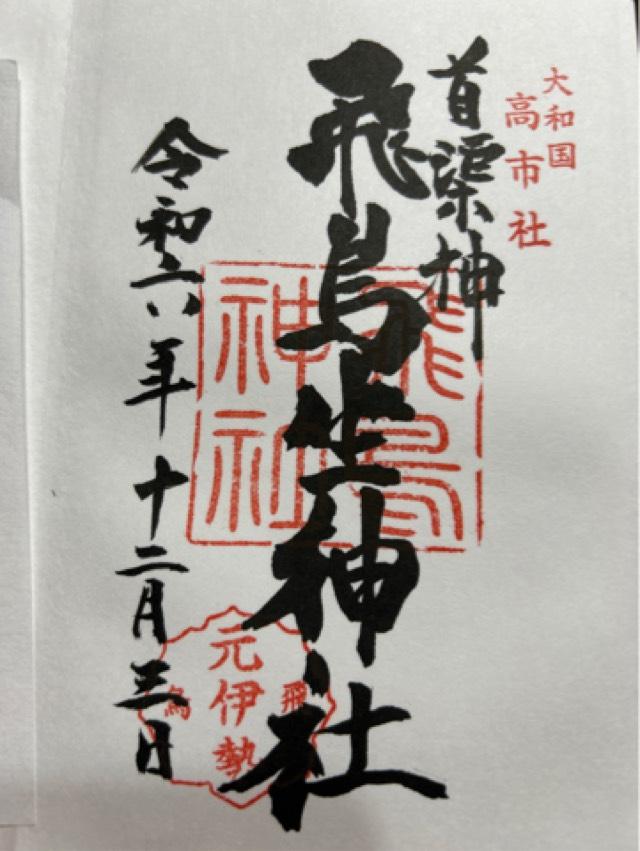 大和国
高市社
首渠神
飛鳥坐神社
飛鳥
神社
令和六年十二月三日
飛鳥
元伊勢